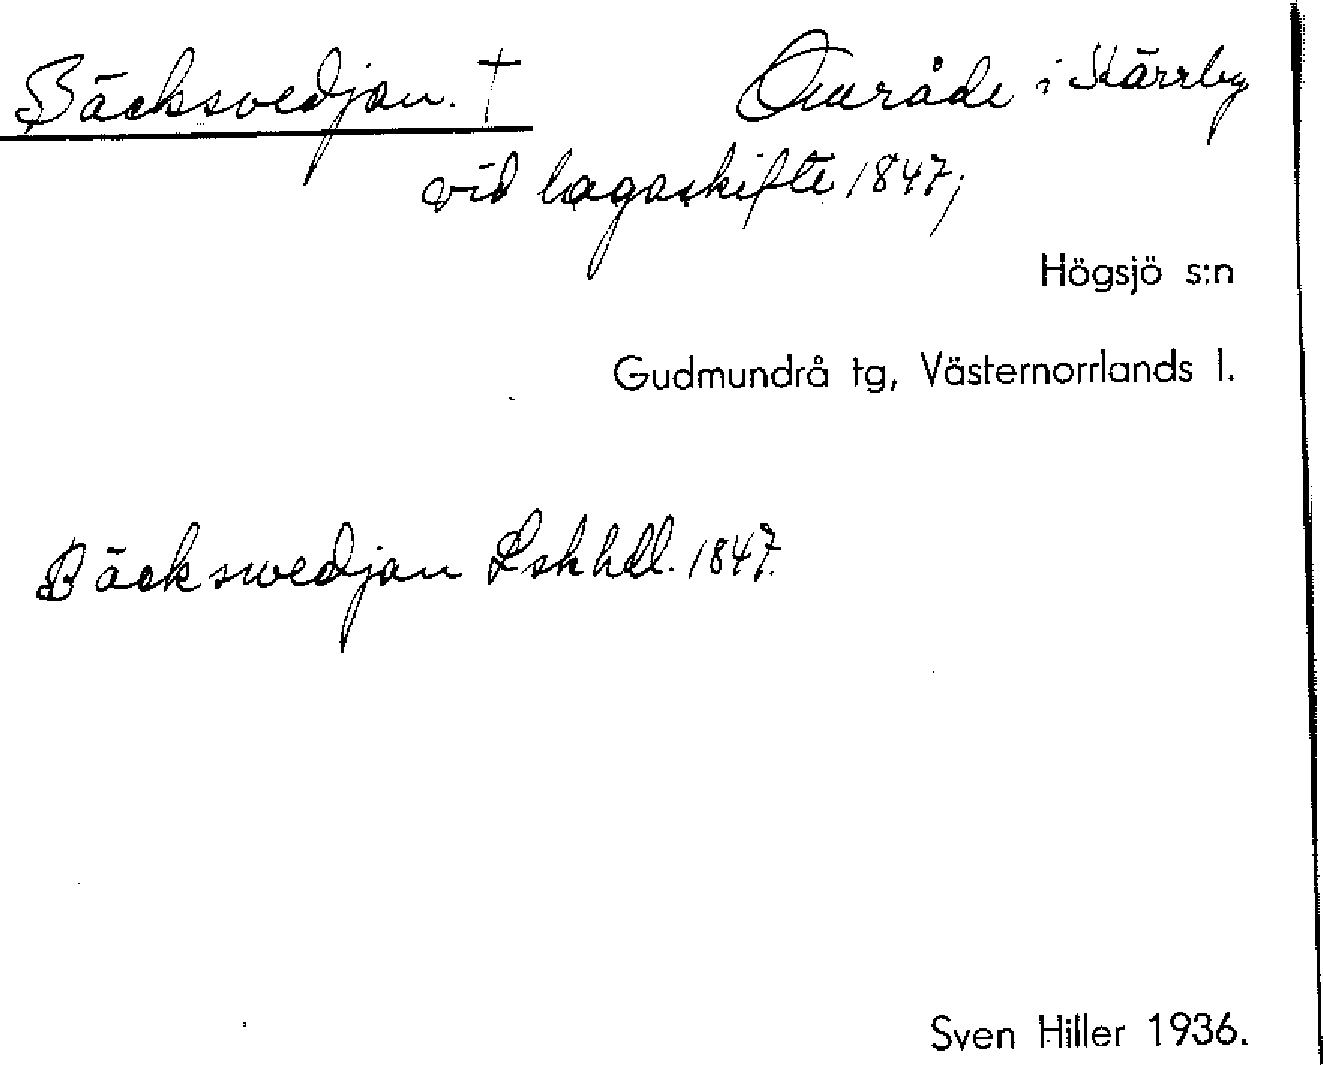 Bäcksvedjan. † Område i Kärrby
vid lagaskifte 1847;
Högsjö s:n
Gudmundrå tg, Västernorrlands l.
Bäckswedjan Lskhdl. 1847.
Sven Hiller 1936.